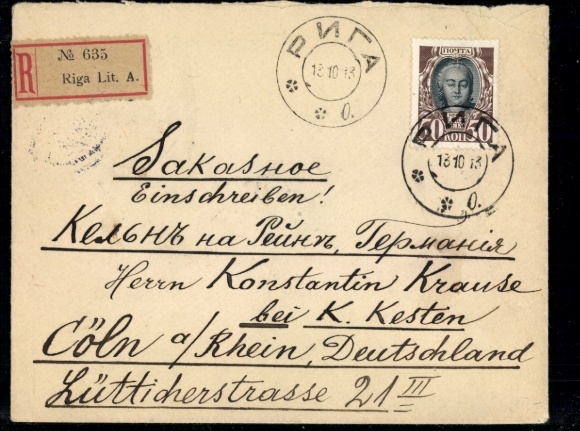 R
№ 635
Riga Lit. A.
РИГА
13 10 13
о.
ПОЧТА
50 50
КОП
РИГА
13 10 13
о.
Заказное
Einschreiben!
Кельнъ на Рейнѣ, Германія
Herrn Konstantin Krause
bei K. Kesten
Cöln a/Rhein, Deutschland
Lütticherstrasse 21 III